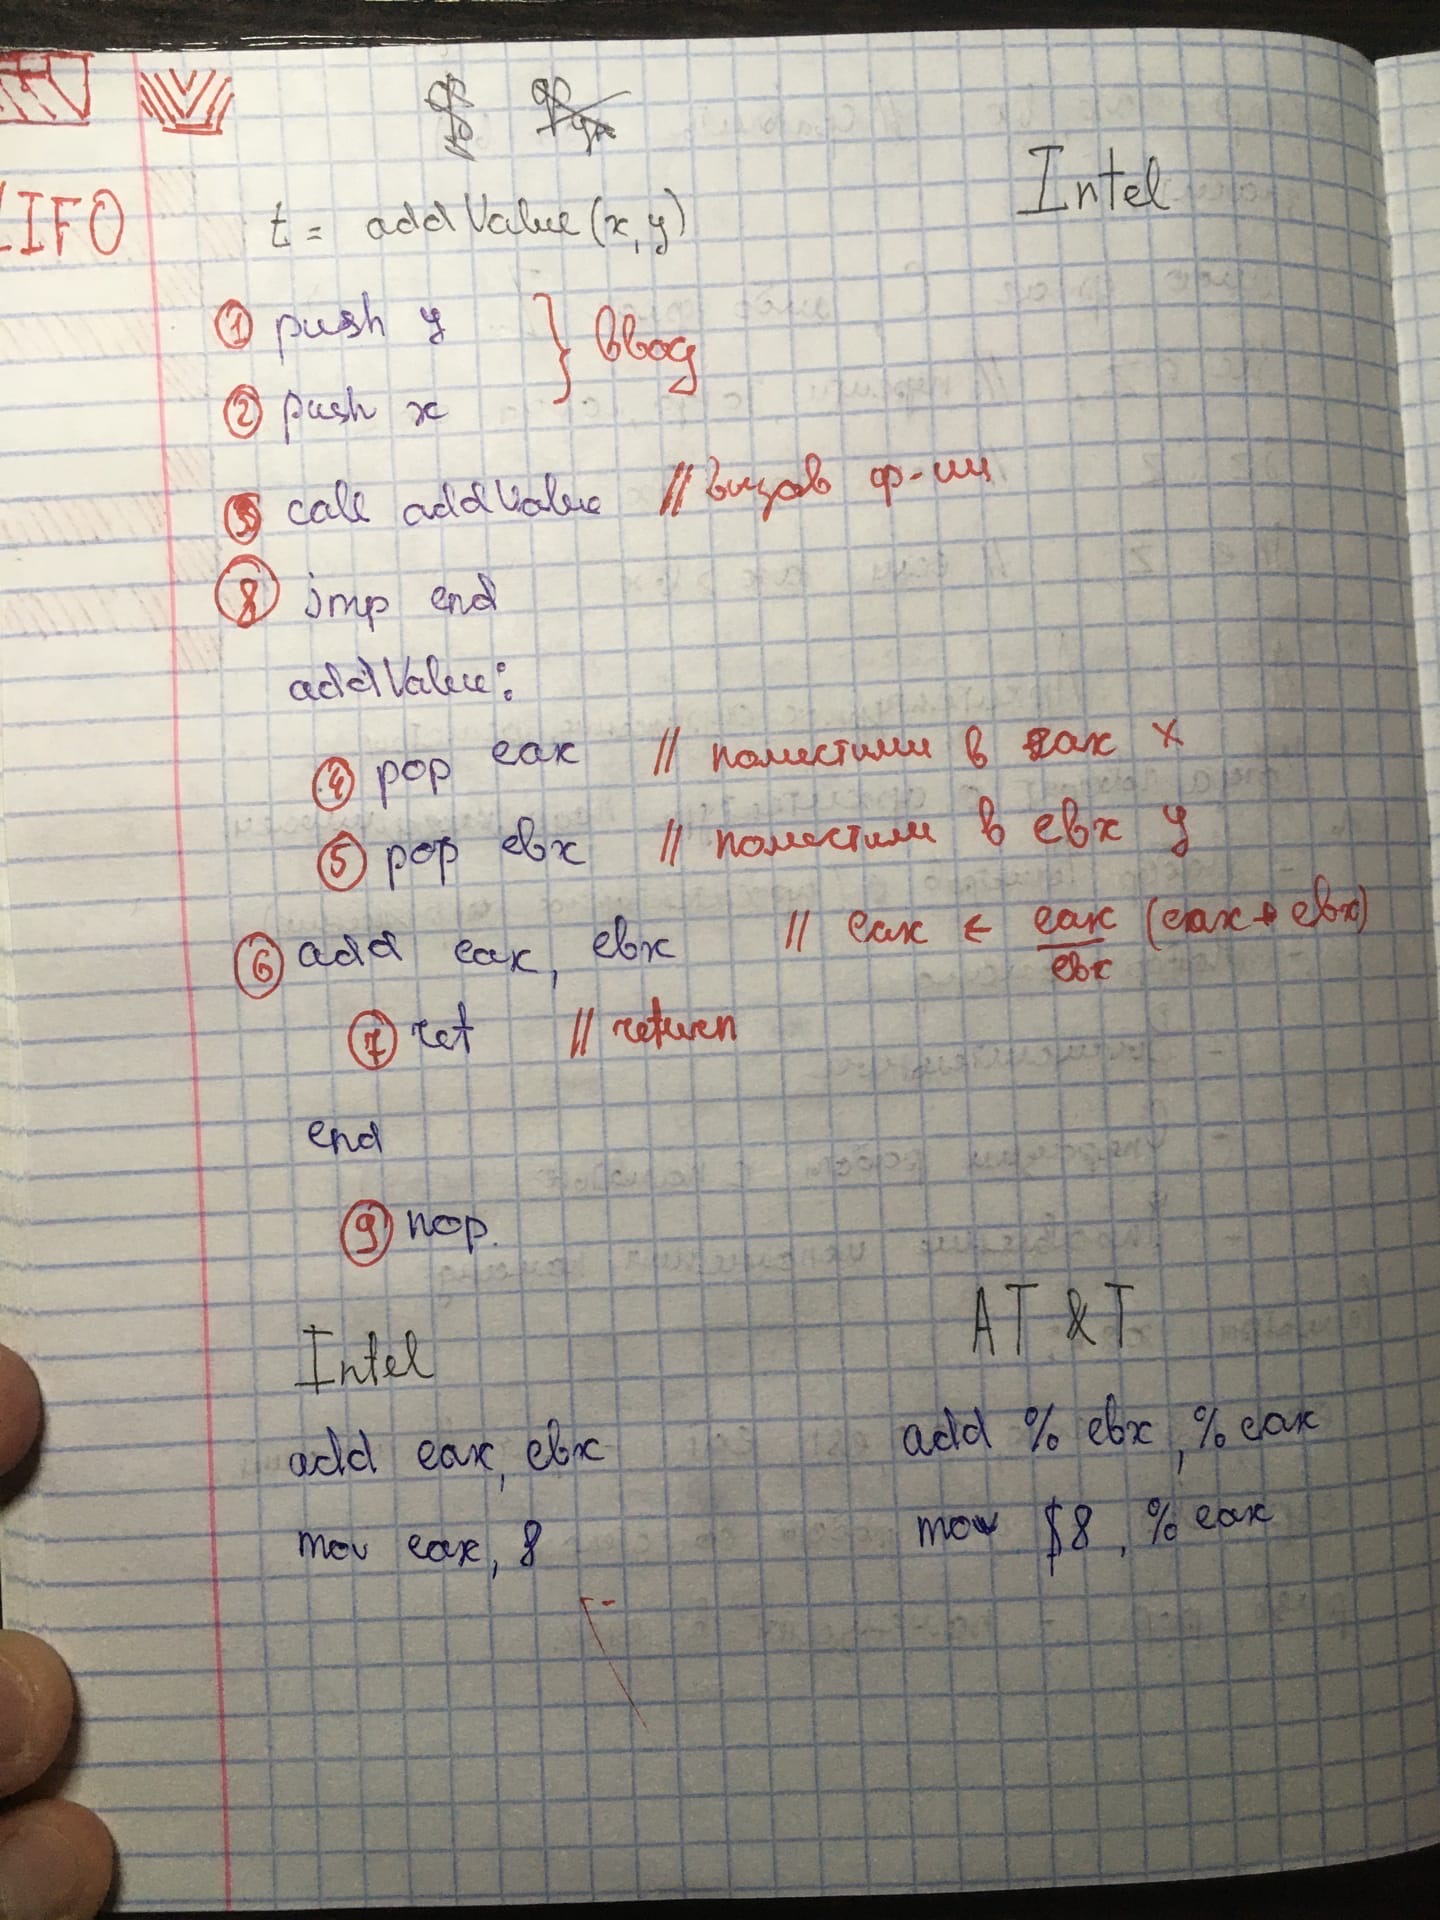 Intel
LIFO
t = addValue(x, y)
① push y } ввод
② push x
③ call addValue // вызов ф-ии
⑧ jmp end
addValue:
④ pop eax // поместили в eax x
⑤ pop ebx // поместили в ebx y
⑥ add eax, ebx // eax ← eax (eax + ebx)
ebx
⑦ ret // return
end
⑨ nop.
Intel AT&T
add eax, ebx add % ebx, % eax
mov eax, 8 mov $8, % eax